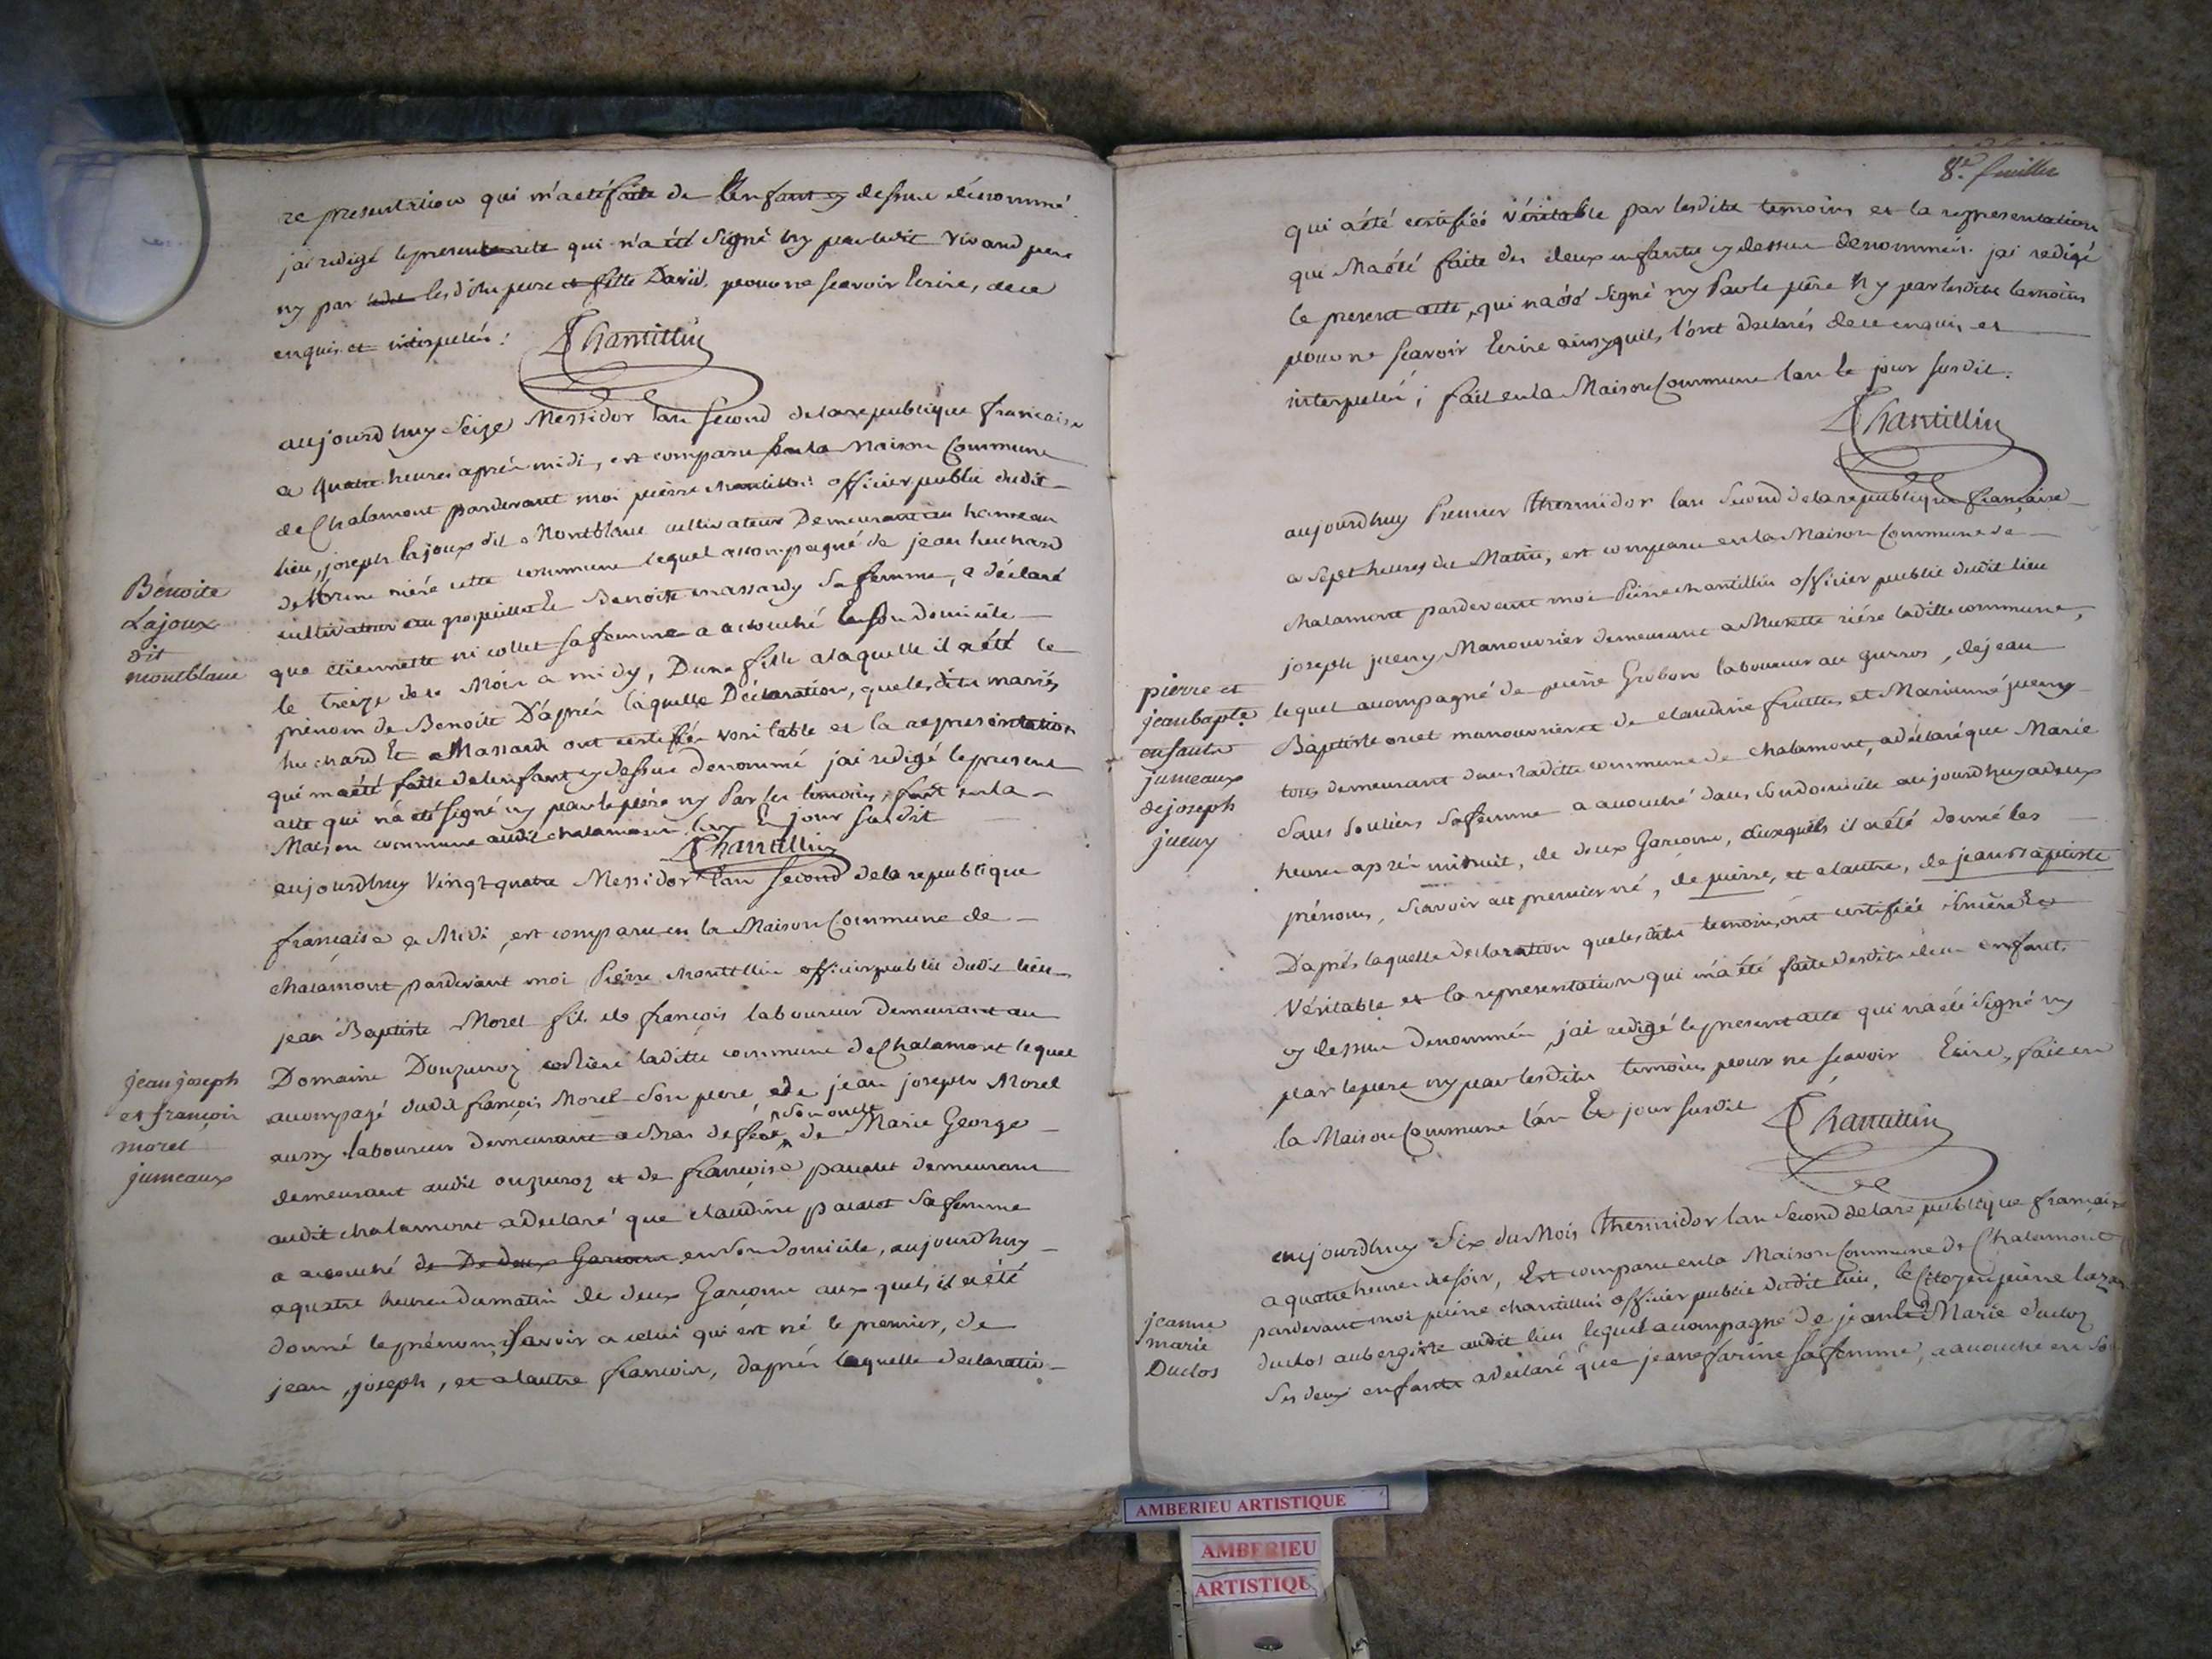 representation qui m'a eté faite de L'enfant cy dessus dénommé.
jai redigé le present acte qui n'a été signé ny par ledit Vivand pere
ny par lesdits pere et fille David, pour ne scavoir Ecrire, de ce
enquis et interpelés:
PChantillin
aujourd'huy Seize Messidor l'an second de la republique francaise
a quatre heures aprés midi, est comparu en la Maison Commune
de Chalamont pardevant moi pierre chantillin officier public dudit
lieu, joseph Lajoux dit Montblanc cultivateur Demeurant au hameau
riére cette commune lequel accompagné de jean huchard
cultivateur au et Benoite massardy sa femme, a déclaré
que etiennette nicollet sa femme a accouché en son domicile
le treize de ce Mois a midy, D'une fille a laquelle il a été le
prénom de Benoite D'aprés laquelle Déclaration, que lesdits mariés
huchard Et Massard ont certifiée veritable et la representation
qui m'a été faite de l'enfant cy dessus denommé jai redigé le present
acte qui n'a été signé ny par le pére ny Par les temoins, fait en la
Maison commune audit chalamont l'an & jour susdit
PChantillin
Bénoite
Lajoux
dit
montblanc
aujourdhuy Vingt quatre Messidor l'an second de la republique
française a Midi, est comparu en la Maison Commune de
chalamont pardevant moi Pierre chantillin officier public dudit lieu
jean Baptiste Morel fils de françois laboureur demeurant au
Domaine Douzuroz riére laditte commune de Chalamont lequel
accompagé dudit françois Morel son pere et de jean joseph Morel
son oncle
aussy laboureur demeurant a Bras de fer de Marie George
demeurant audit ouzuroz et de françoise paccalet demeurant
audit chalamont a declaré que claudine pacalet sa femme
a accouché de De deux Garcons en son domicile, aujourd'huy
a quatre heures du matin de deux Garçons aux quels il a été
donné le prénom, Savoir a celui qui est né le premier, de
jean, joseph, et a l'autre francois, d'aprés laquelle declaration
jean joseph
et françois
morel
jumeaux
8.e feuillet
qui a été certifiée véritable par lesdits temoins et la representation
qui M'a été faite des deux enfants cy dessus denommés. jai redigé
le present acte, qui n'a été signé ny Par le pére Ny par lesdits temoins
pour ne scavoir Ecrire ainsy quils l'ont declarés de ce enquis et
interpelés; fait en la Maison Commune l'an & jour susdit.
PChantillin
aujourd'huy Premier thermidor l'an second de la republique française
a Sept heures du Matin, est comparu en la Maison Commune de
chalamont pardevant moi Pierre chantillin officier public dudit lieu
joseph jueny Manouvrier demeurant a Murette riére laditte commune,
lequel accompagné de pierre Grobon laboureur au guerros, de jean
Baptiste oriet manouvrier et de claudine fruttes et Marianne jueny
tous demeurant dans laditte commune de chalamont, a déclaré que Marie
Sans Souliers sa femme a accouché dans son domicile aujourd'huy a deux
heures aprés minuit, de deux Garcons, auxquels il a été donné les
prénoms, Scavoir au premier né, de pierre, et a l'autre, de jean Baptiste
D'aprés laquelle declaration que lesdits temoins, ont certifiée sincére Et
Véritable et la representation qui m'a été faite desdits deux enfants
cy dessus denommés, jai redigé le present acte qui n'a été signé ny
par le pere ny par lesdits temoins pour ne scavoir Ecrire, fait en
la Maison Commune l'an & jour susdit
PChantillin
pierre et
jean bapte
enfants
jumeaux
de joseph
jueny
aujourdhuy Six du Mois thermidor l'an second de la republique française
a quatre heures du soir, Est comparu en la Maison Commune de Chalamont
pardevant moi pierre chantillin officier public dudit lieu, le Citoyen pierre
duclos aubergiste audit lieu lequel accompagné de jean & Marie duclos
ses deux enfants a declaré que jeane farine sa femme, a accouché en so
jeanne
marie
Duclos
AMBERIEU ARTISTIQUE
AMBERIEU
ARTISTIQUE